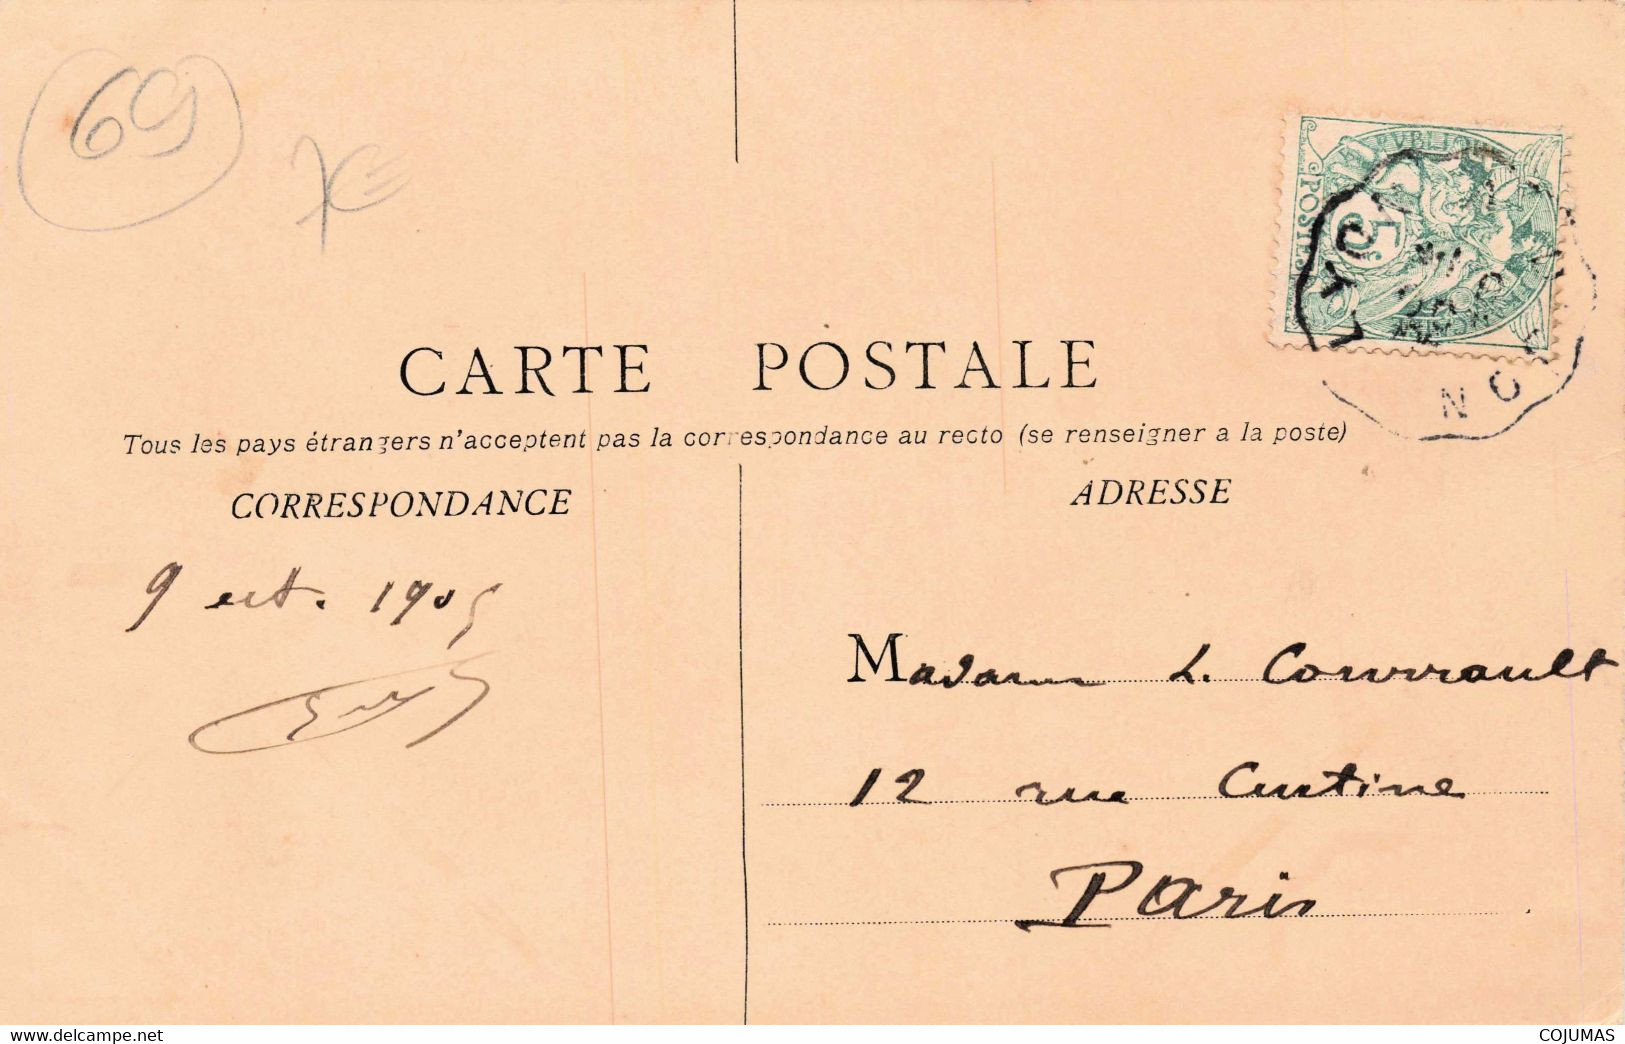 69
7€
RÉPUBLIQUE
POSTES
5c
LYON
CARTE POSTALE
Tous les pays étrangers n'acceptent pas la correspondance au recto (se renseigner a la poste)
CORRESPONDANCE
ADRESSE
9 oct. 1905
Madame L. Couvrault
12 rue Custine
Paris
www.delcampe.net
COJUMAS